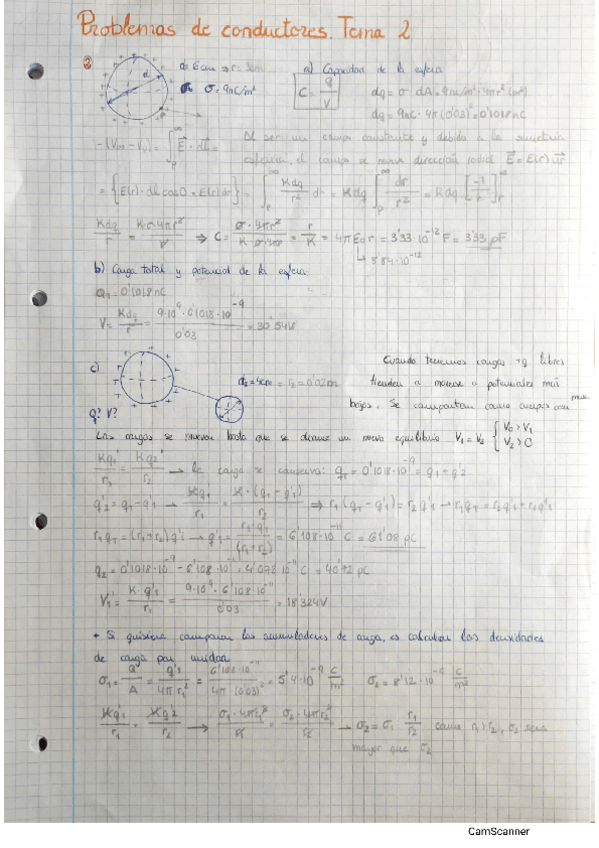 Problemas de conductores. Tema 2
2 d = 6cm → r = 3cm a) Capacidad de la esfera
σ = 9nC/m² C = q/V dq = σ · dA = 9nC/m² · 4πr² (m²)
dq = 9nC · 4π (0'03)² = 0'1018nC
-(V∞ - Vp) = ∫p^∞ E · dl = Al ser un campo constante y debido a la simetría
esférica, el campo se mueve dirección radial E = E(r) ur
= {E(r) · dl cos0 = E(r) dr} = ∫p^∞ Kdq/r² dr = Kdq ∫p^∞ dr/r² = Kdq [-1/r]r^∞
Kdq/r = K·σ·4πr²/r ⇒ C = σ·4πr²/K·σ·4πr = r/K = 4πε0 r = 3'33·10⁻¹² F = 3'33 pF
↳ 8'84·10⁻¹²
b) Carga total y potencial de la esfera
QT = 0'1018nC
V = Kdq/r = 9·10⁹·0'1018·10⁻⁹/0'03 = 30'54V
c) d2 = 4cm → r2 = 0'02m
Cuando tenemos cargas +q libres
tienden a moverse a potenciales más
bajos. Se comportan como cuerpos con masa
Q? V?
Las cargas se mueven hasta que se alcance un nuevo equilibrio V1 = V2 { V0 > V1
V2 > 0
Kq'1/r1 = Kq'2/r2 → la carga se conserva: qT = 0'1018·10⁻⁹ = q'1 + q'2
q'2 = qT - q'1 → Kq'1/r1 = K·(qT - q'1)/r2 ⇒ r1(qT - q'1) = r2 q'1 → r1qT = r2q'1 + r1q'1
r1qT = (r1+r2)q'1 → q'1 = r1·qT/(r1+r2) = 6'108·10⁻¹¹ C = 61'08 pC
q2 = 0'1018·10⁻⁹ - 6'108·10⁻¹¹ = 4'072·10⁻¹¹ C = 40'72 pC
V'1 = K·q'1/r1 = 9·10⁹·6'108·10⁻¹¹/0'03 = 18'324V
+ Si quisiera comparar las de carga, es calcular las densidades
de carga por unidad
σ1 = Q/A = q'1/4πr1² = 6'108·10⁻¹¹/4π(0'03)² = 5'4·10⁻⁹ C/m² σ2 = 8'12·10⁻⁹ C/m²
Kq'1/r1 = Kq'2/r2 → σ1·4πr1²/r1 = σ2·4πr2²/r2 → σ2 = σ1 r1/r2 como r1 > r2, σ2 será
mayor que σ2
CamScanner